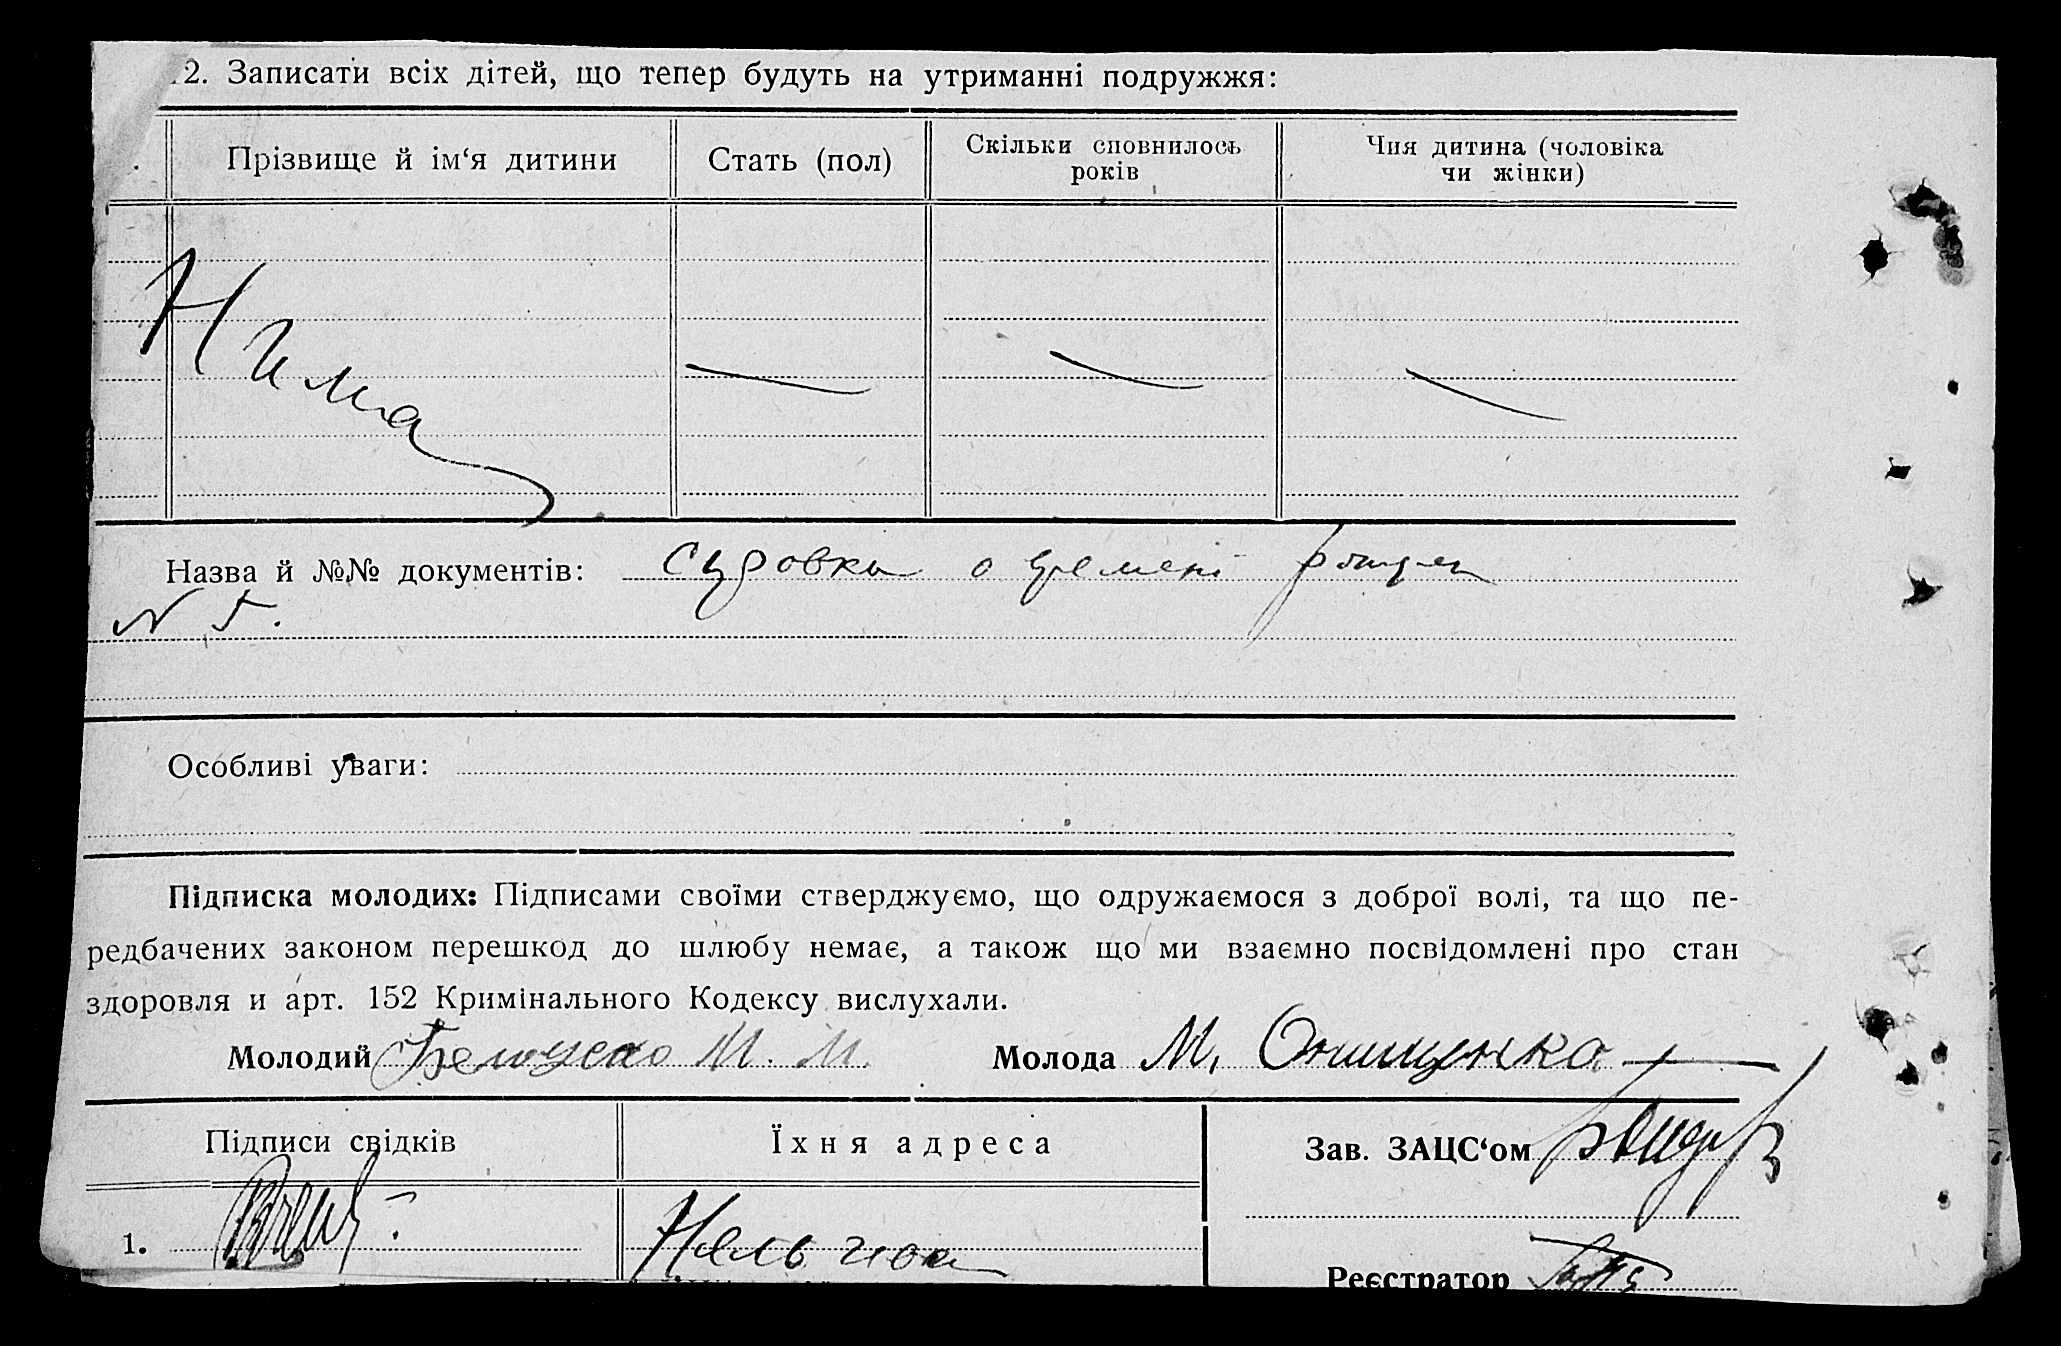 12. Записати всіх дітей, що тепер будуть на утриманні подружжя:
Прізвище й ім‘я дитини
Стать (пол)
Скільки сповнилось
років
Чия дитина (чоловіка
чи жінки)
Нима
Назва й №№ документів: о времені
N 5.
Особливі уваги:
Підписка молодих: Підписами своїми стверджуємо, що одружаємося з доброї волі, та що пе-
редбачених законом перешкод до шлюбу немає, а також що ми взаємно посвідомлені про стан
здоровля и арт. 152 Кримінального Кодексу вислухали.
Молодий М. М. Молода М. Онищенко
Підписи свідків
Їхня адреса
Зав. ЗАЦС‘ом
1.
Реєстратор